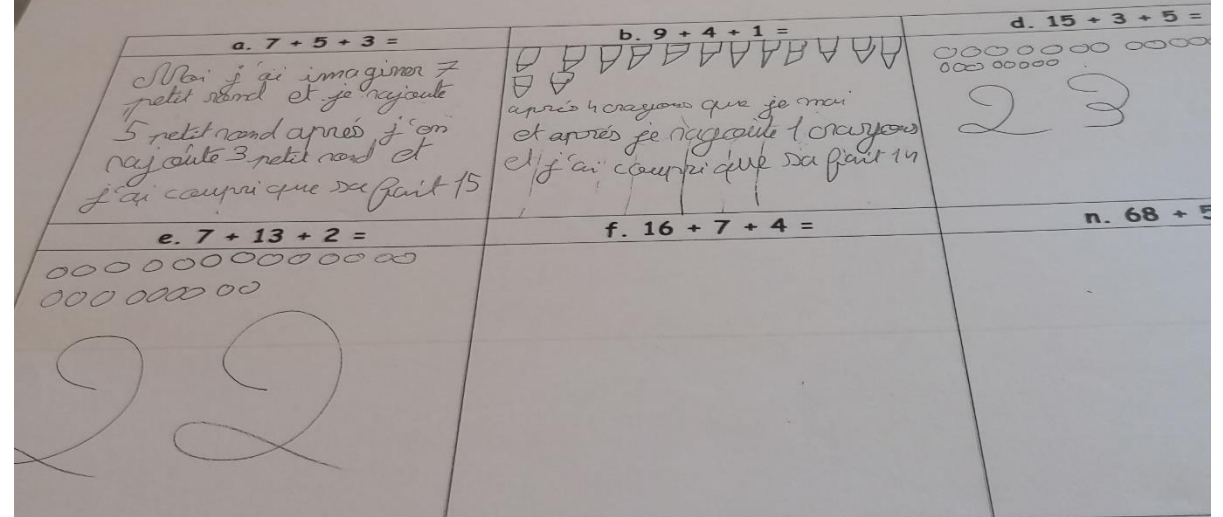 a. 7 + 5 + 3 =
Moi j'ai imaginer 7
petit rond et je rajoute
5 petit rond aprés j'en
rajoute 3 petit rond et
j'ai compri que sa fait 15
b. 9 + 4 + 1 =
aprés 4 crayons que je mai
et aprés je ragcoute 1 crayons
et j'ai compri que sa fait 14
d. 15 + 3 + 5 =
23
e. 7 + 13 + 2 =
22
f. 16 + 7 + 4 =
n. 68 + 5